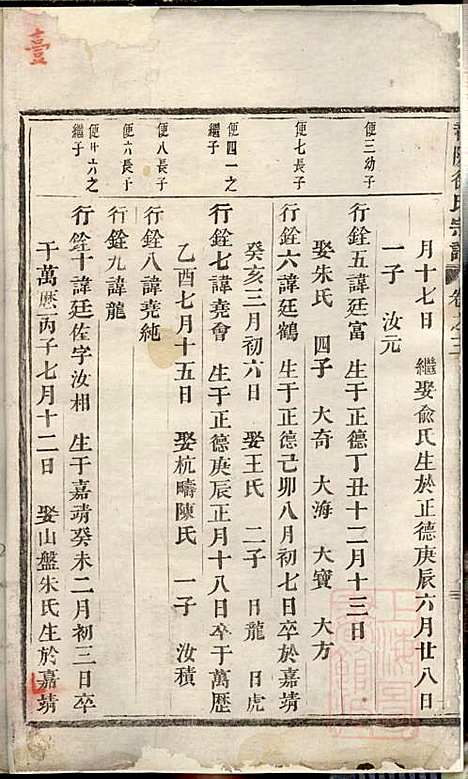 臺
氏宗譜 卷之二
月十七日 繼娶俞氏生於正德庚辰六月廿八日
一子 汝元
便三幼子
行銓五諱廷富 生于正德丁丑十二月十三日
娶朱氏 四子 大奇 大海 大寶 大方
便七長子
行銓六諱廷鶴 生于正德己卯八月初七日卒於嘉靖
癸亥三月初六日 娶王氏 二子 日龍 日虎
便四一之繼子
行銓七諱堯會 生于正德庚辰正月十八日卒于萬歷
乙酉七月十五日 娶杭疇陳氏 一子 汝積
便八長子
行銓八諱堯純
便六長子
行銓九諱龍
便廿六之繼子
行銓十諱廷佐字汝相 生于嘉靖癸未二月初三日卒
于萬歷丙子七月十二日 娶山盤朱氏生於嘉靖